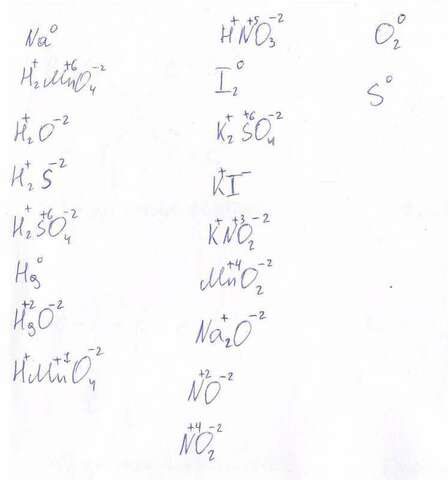 Na⁰
H₂⁺Mn⁺⁶O₄⁻²
H₂⁺O⁻²
H₂⁺S⁻²
H₂⁺S⁺⁶O₄⁻²
Hg⁰
Hg⁺²O⁻²
H⁺Mn⁺⁷O₄⁻²
H⁺N⁺⁵O₃⁻²
I₂⁰
K₂⁺S⁺⁶O₄⁻²
K⁺I⁻
K⁺N⁺³O₂⁻²
Mn⁺⁴O₂⁻²
Na₂⁺O⁻²
N⁺²O⁻²
N⁺⁴O₂⁻²
O₂⁰
S⁰